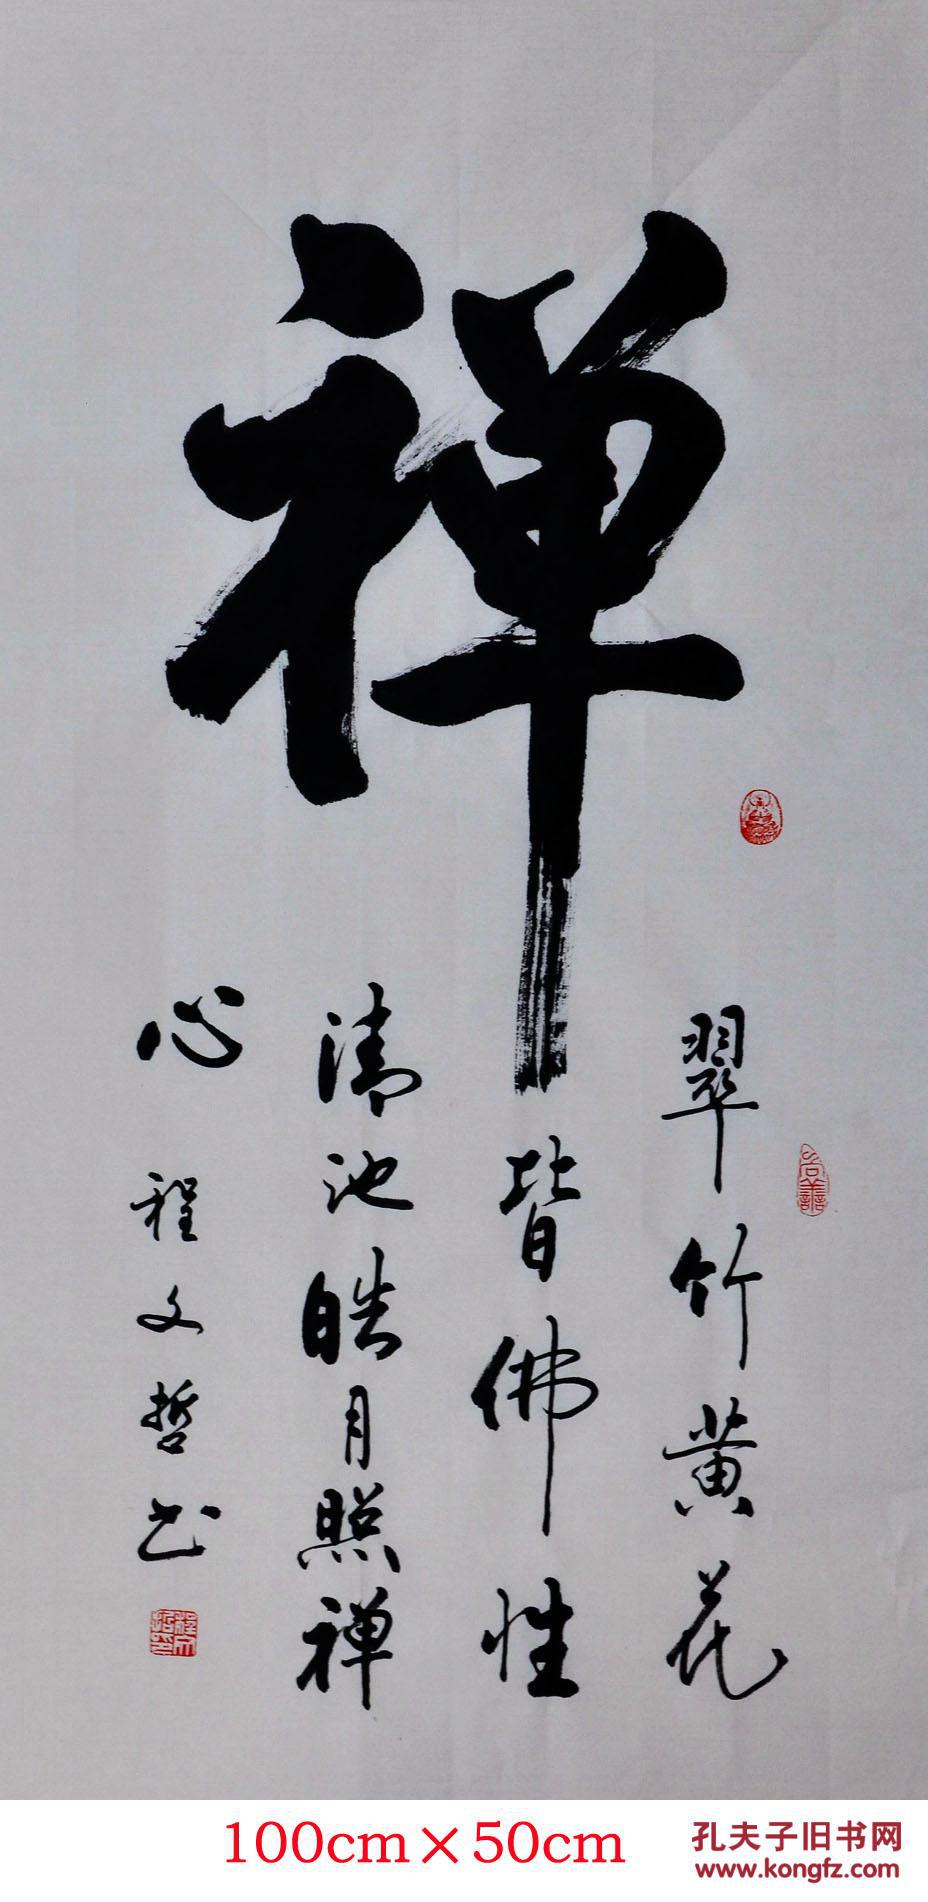 禅
翠竹黄花
皆佛性
清池皓月照禅
心
程文哲书
尚善
程文哲印
100cm×50cm
孔夫子旧书网
www.kongfz.com